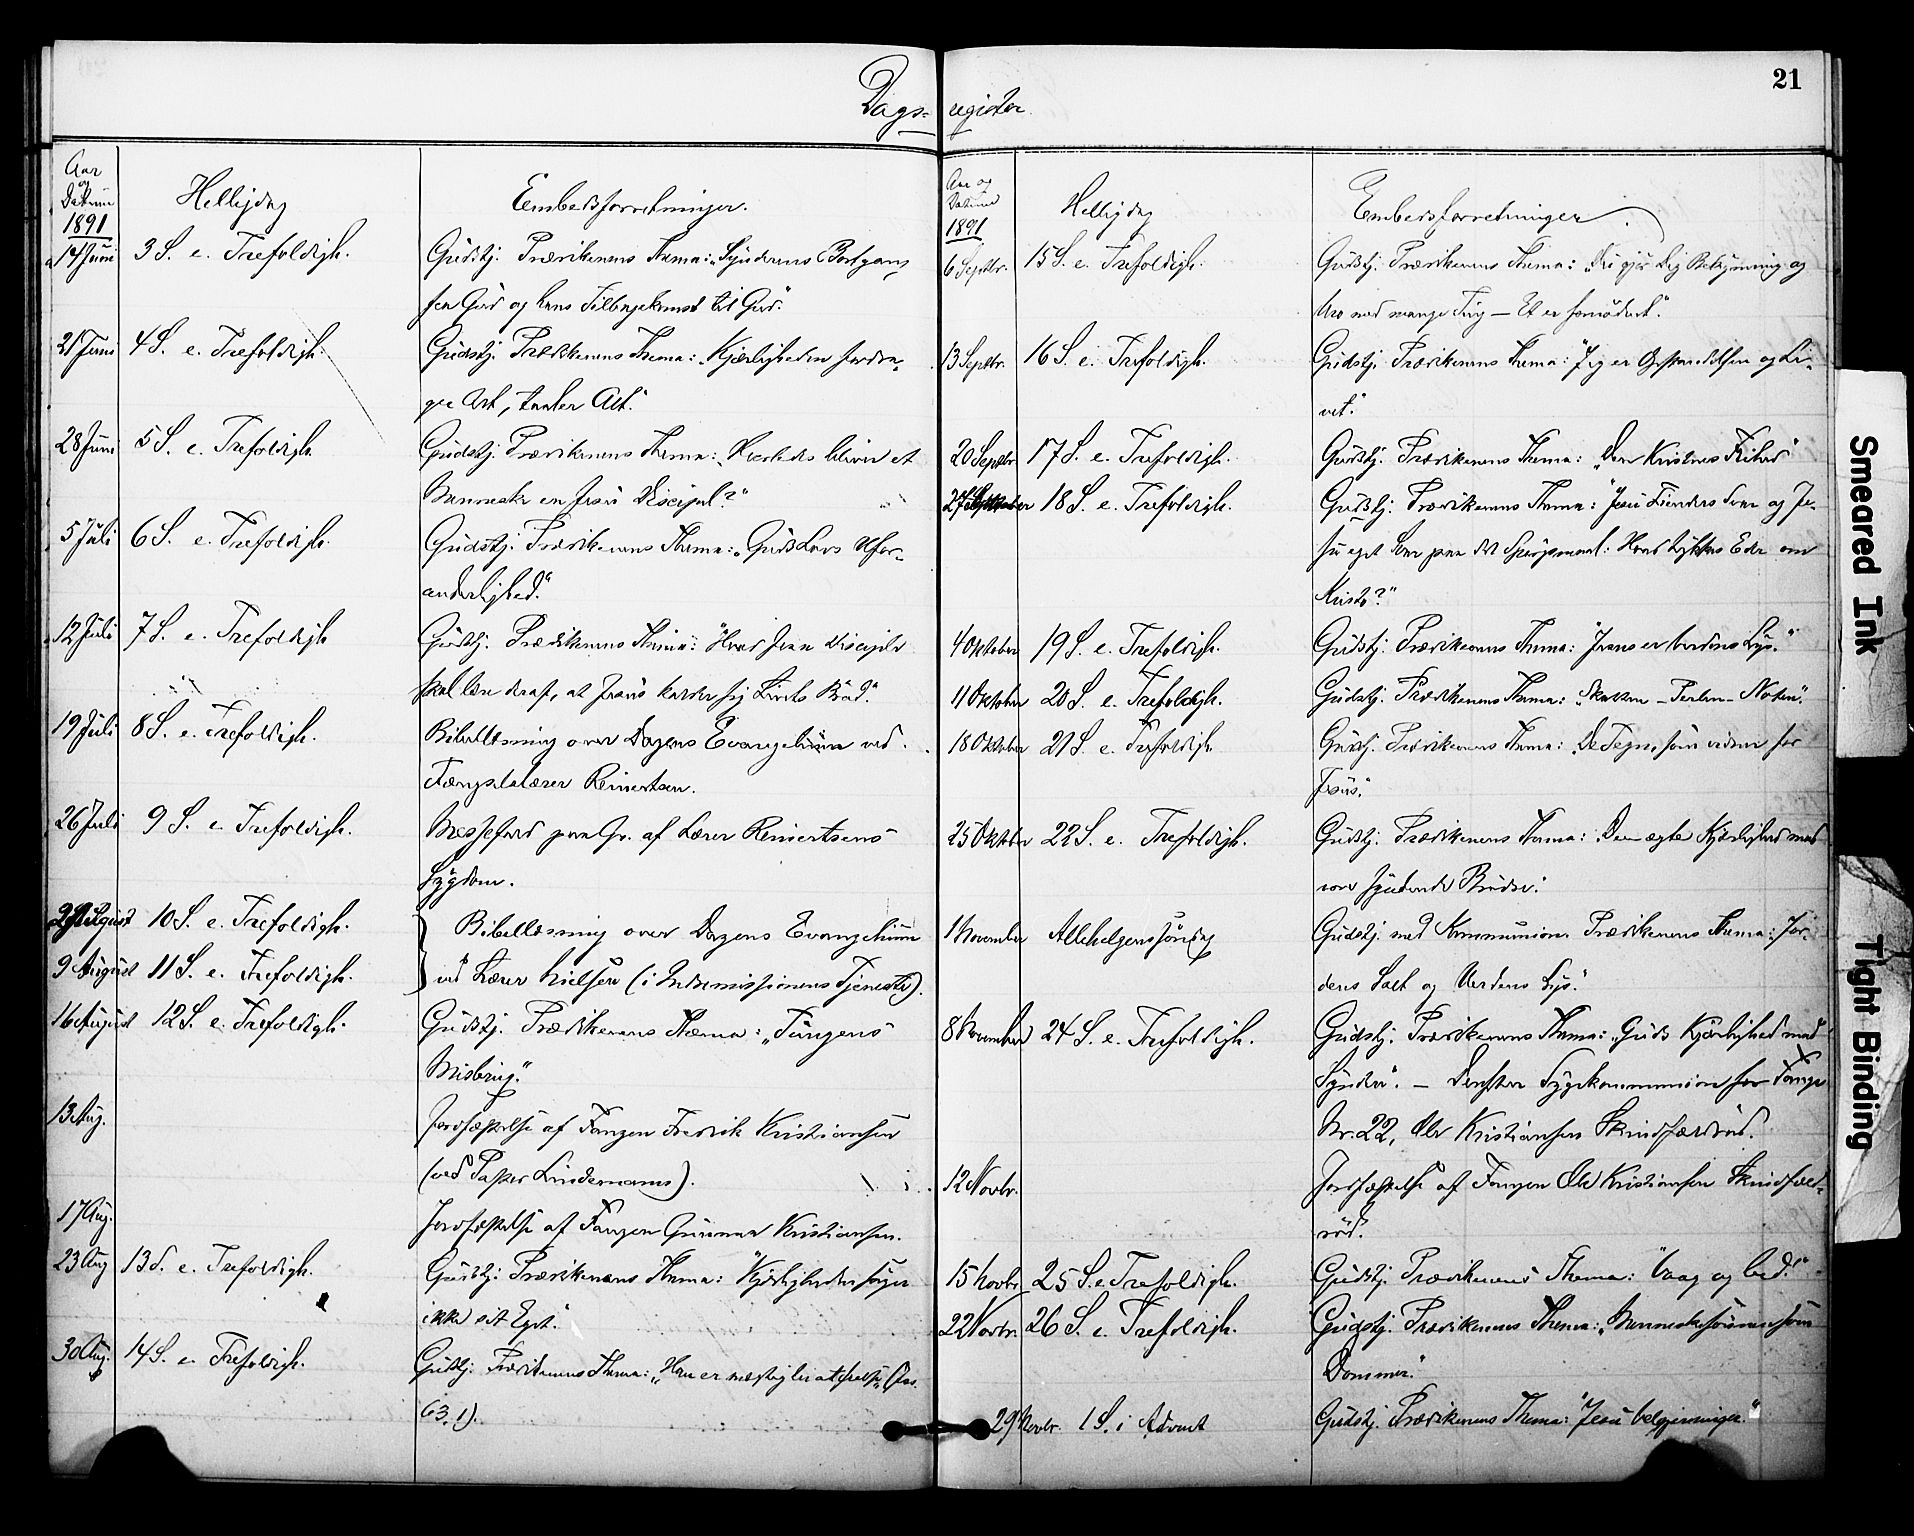 Dags-register.
21
Aar og Datum
Helligdag
Embedsforretninger.
1891
14 Juni 3 S. e. Trefoldigh. Gudstj. Prædikenens Thema: „Synderens Bortgang
fra Gud og hans Tilbagekomst til Gud."
21 Juni 4 S. e. Trefoldigh. Gudstj. Prædikenens Thema: Kjærligheden fordra-
ger Alt, taaler Alt."
28 Juni 5 S. e. Trefoldigh. Gudstj. Prædikenens Thema: „Hvorledes bliver et
Menneske en Jesu Discipel?"
5 Juli 6 S. e. Trefoldigh. Gudstj. Prædikenens Thema: „Guds Lovs Ufor-
anderlighed."
12 Juli 7 S. e. Trefoldigh Gudstj. Prædikenens Thema: "Hvad Jesu Disciple
skal lære deraf, at Jesus kalder sig Livets Brød."
19 Juli 8 S. e. Trefoldigh. Bibellæsning over Dagens Evangelium ved
Fængselslærer Reinertsen.
26 Juli 9 S. e. Trefoldigh. Messefald paa Gr. af Lærer Reinertsens
Sygdom.
2 August 10 S. e. Trefoldigh. Bibellæsning over Dagens Evangelium
9 August 11 S. e. Trefoldigh. ved Lærer Nielsen (i Indremissionens Tjeneste).
16 August 12 S. e. Trefoldigh. Gudstj. Prædikenens Thema: „Tungens
Misbrug."
13 Aug. Jordfæstelse af Fangen Fredrik Kristiansen
(ved Pastor Lindemann).
17 Aug. Jordfæstelse af Fangen Gunnar Kristiansen.
23 Aug 13 S. e. Trefoldigh. Gudstj. Prædikenens Thema: "Kjærligheden søger
ikke sit Eget."
30 Aug. 14 S. e. Trefoldigh. Gudstj. Prædikenens Thema: „Han er mægtig til at frelse" (Jes.
63,1).
Aar og Datum
Helligdag
Embedsforretninger.
1891
6 Septbr. 15 S. e. Trefoldigh. Gudstj. Prædikenens Thema: „Du gjør Dig Bekymring og
Uro med mange Ting — Et er fornødent".
13 Septbr. 16 S. e. Trefoldigh. Gudstj. Prædikenens Thema: "Jeg er Opstandelsen og Li-
vet."
20 Septbr 17 S. e. Trefoldigh. Gudstj. Prædikenens Thema: „Den Kristnes Frihed"
27 September 18 S. e. Trefoldigh. Gudstj. Prædikenens Thema: "Jesu Fienders Svar og Je-
su eget Svar paa det Spørgsmaal: Hvad tykkes Eder om
Kristo?"
4 Oktober 19 S. e. Trefoldigh. Gudstj. Prædikenens Thema: "Jesus er Verdens Lys."
11 Oktober 20 S. e. Trefoldigh. Gudstj. Prædikenens Thema: „Skatten – Perlen – Noten".
18 Oktober 21 S. e. Trefoldigh Gudstj. Prædikenens Thema: „De Tegn, som vidner for
Jesus."
25 Oktober 22 S. e. Trefoldigh. Gudstj. Prædikenens Thema: „Den ægte Kjærlighed mod
vore syndende Brødre."
1 November Allehelgenssøndag Gudstj. med Kommunion. Prædikenens Thema: „Jor-
dens Salt og Verdens Lys."
8 November 24 S. e. Trefoldigh. Gudstj. Prædikenens Thema: „Guds Kjærlighed mod
Syndere". – Derefter Sygekommunion for Fange
Nr. 22, Ole Kristiansen Skindfældrød.
12 Novbr. Jordfæstelse af Fangen Ole Kristiansen Skindfæld-
rød.
15 Novbr. 25 S. e Trefoldigh. Gudstj. Prædikenens Thema: "Vaag og bed!"
22 Novbr. 26 S. e. Trefoldigh. Gudstj. Prædikenens Thema: „Menneskesønnen som
Dommer."
29 Novbr. 1 S. i Advent Gudstj. Prædikenens Thema: "Jesu Velgjerninger."
Smeared Ink
Tight Binding